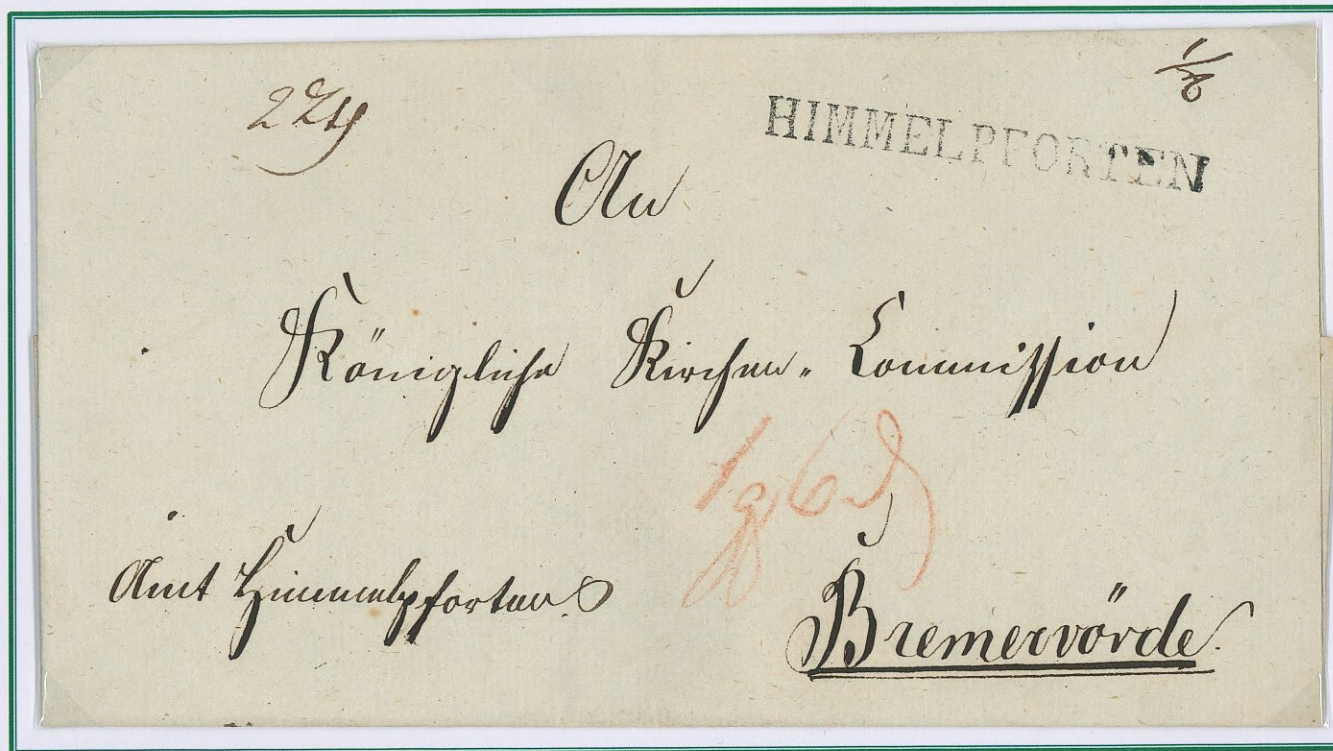 HIMMELPFORTEN
An
Königliche Kirchen-Commission
Amt Himmelpforten
Bremervörde.